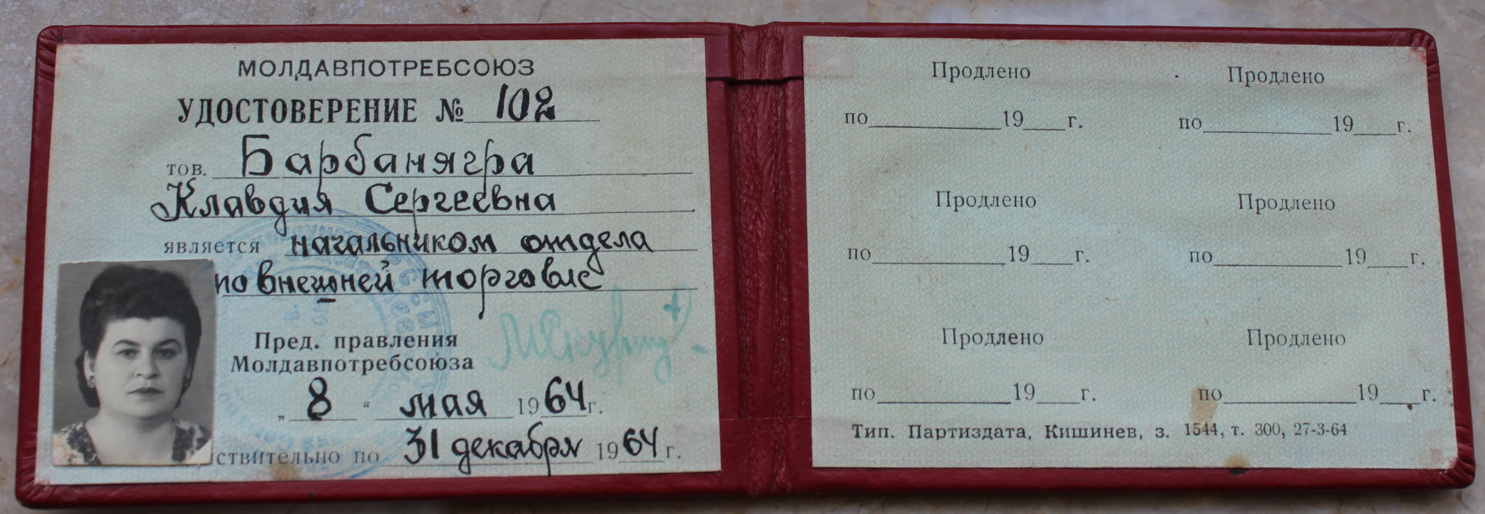 МОЛДАВПОТРЕБСОЮЗ
УДОСТОВЕРЕНИЕ № 102
тов. Барбанягра
Клавдия Сергеевна
является начальником отдела
по внешней торговле
Пред. правления
Молдавпотребсоюза
„ 8 “ мая 1964 г.
ствительно по 31 декабря 1964 г.
Продлено
по 19 г.
Продлено
по 19 г.
Продлено
по 19 г.
Продлено
по 19 г.
Продлено
по 19 г.
Продлено
по 19 г.
Тип. Партиздата, Кишинев, з. 1544, т. 300, 27-3-64